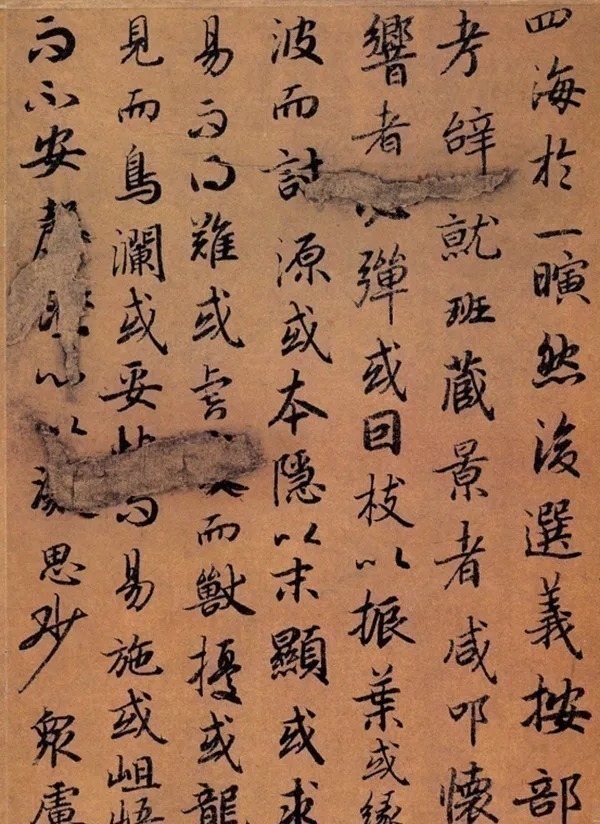 四海於一瞚然後選義按部
考辭就班藏景者咸叩懷
響者必彈或因枝以振葉或緣
波而討源或本隱以末顯或求
易而得難或虎而獸擾或龍
見而鳥瀾或妥而易施或岨峿
而不安罄澄心以凝思眇衆慮